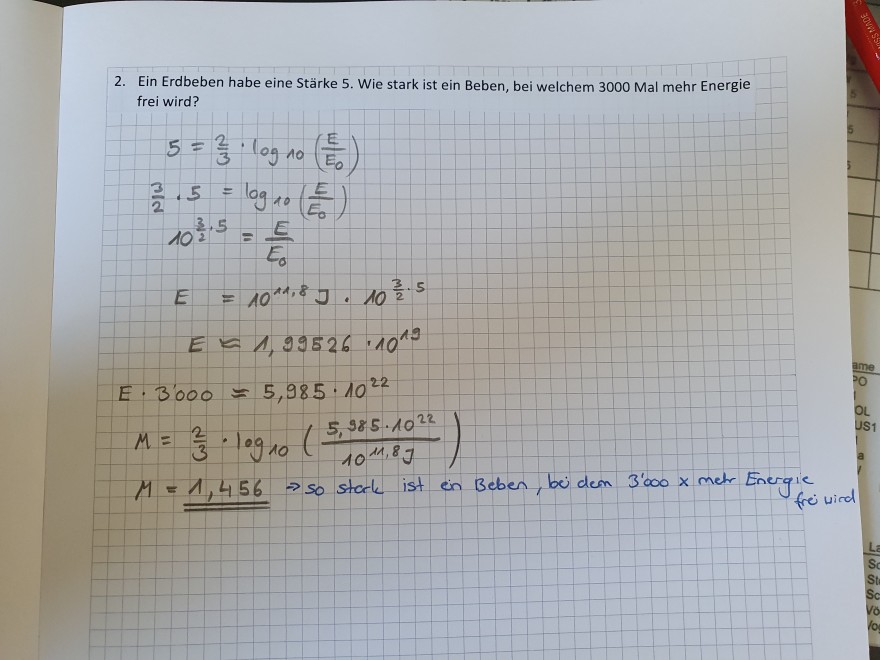 2. Ein Erdbeben habe eine Stärke 5. Wie stark ist ein Beben, bei welchem 3000 Mal mehr Energie
frei wird?
5 = 2/3 · log 10 (E/E₀)
3/2 · 5 = log 10 (E/E₀)
10^(3/2 · 5) = E/E₀
E = 10^11,8 J · 10^(3/2 · 5)
E ≈ 1,99526 · 10^19
E · 3'000 = 5,985 · 10^22
M = 2/3 · log 10 (5,985 · 10^22 / 10^11,8 J)
M = 1,456 ⇒ so stark ist ein Beben, bei dem 3'000 x mehr Energie
frei wird
MADE
5
ame
PO
OL
US1
a
La
Sc